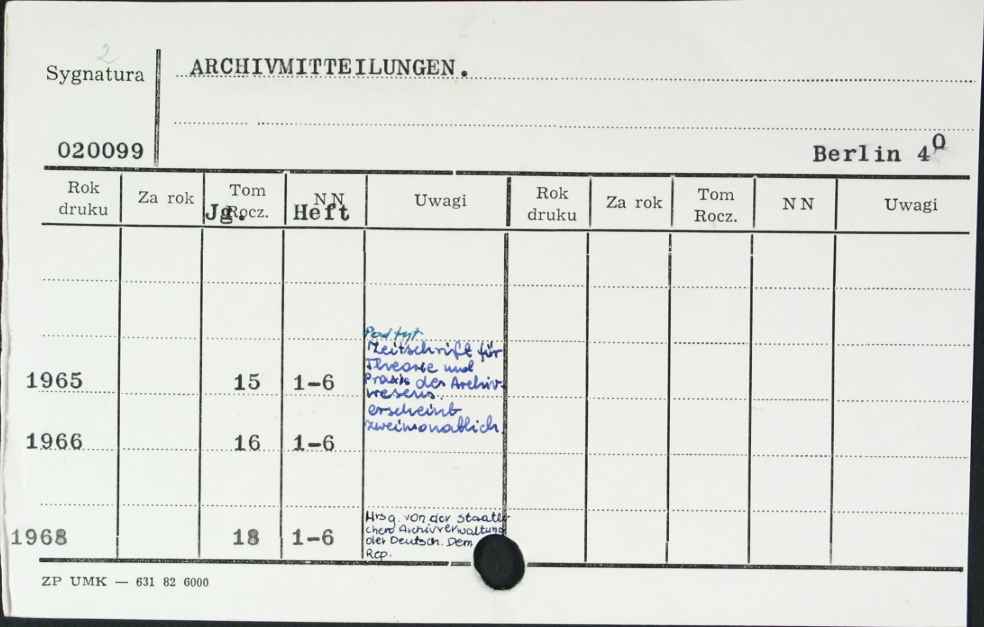 2
Sygnatura
ARCHIVMITTEILUNGEN.
020099
Berlin 4º
Rok druku Za rok Tom Rocz. Jg. NN Heft Uwagi Rok druku Za rok Tom Rocz. NN Uwagi
Pod tyt.
Zeitschrift für
Theorie und
Praxis des Archiv-
wesens.
1965 15 1-6
erscheint
zweimonatlich.
1966 16 1-6
Hrsg. von der Staatli-
chen Archivverwaltung
der Deutsch. Dem
Rep.
1968 18 1-6
ZP UMK — 631 82 6000